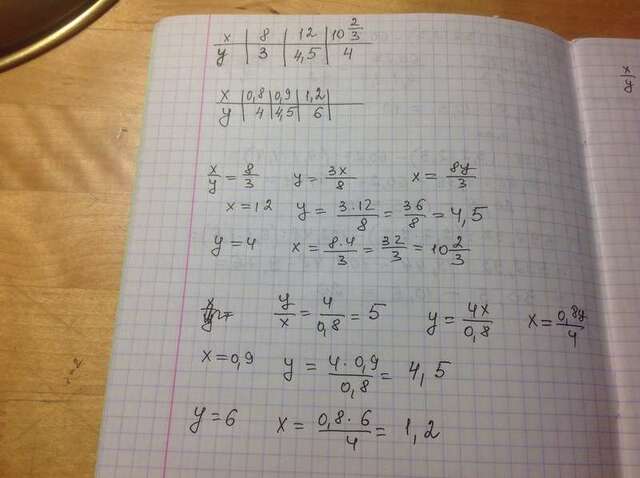 x | 8 | 12 | 10 2/3
y | 3 | 4,5 | 4
x | 0,8 | 0,9 | 1,2 |
y | 4 | 4,5 | 6 |
x/y = 8/3 y = 3x/8 x = 8y/3
x = 12 y = 3·12/8 = 36/8 = 4,5
y = 4 x = 8·4/3 = 32/3 = 10 2/3
y/x = 4/0,8 = 5 y = 4x/0,8 x = 0,8y/4
x = 0,9 y = 4·0,9/0,8 = 4,5
y = 6 x = 0,8·6/4 = 1,2
x/y